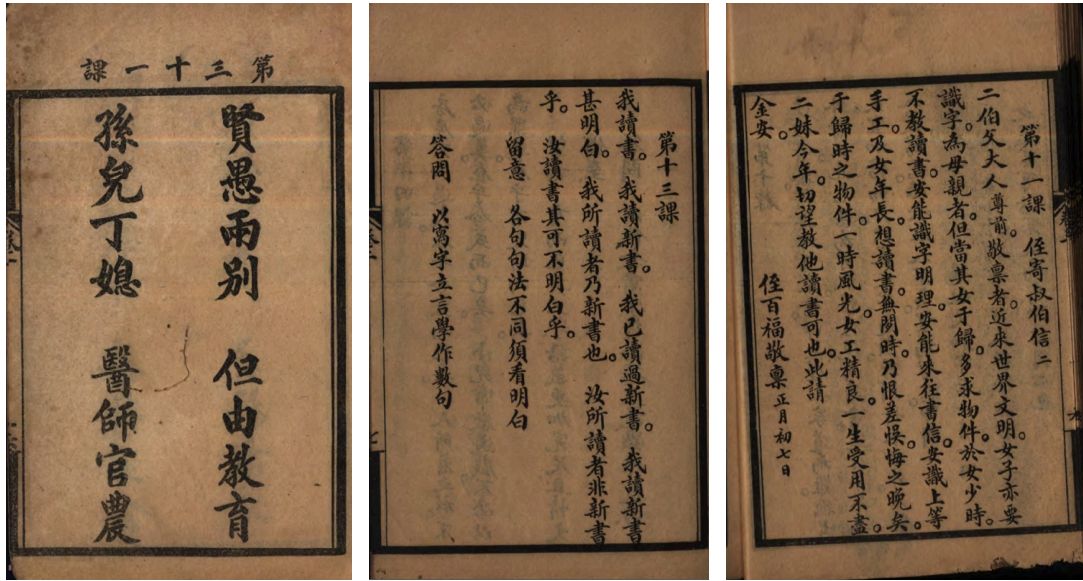 第三十一課
賢愚兩別 但由教育
孫兒丁媳 醫師官農
第十三課
我讀書。我讀新書。 我已讀過新書。我讀新書
甚明白。 我所讀者乃新書也。 汝所讀者非新書
乎。 汝讀書其可不明白乎。
留意 各句句法不同須看明白
答問 以寫字立言學作數句
第十一課 侄寄叔伯信二
二伯父大人尊前。敬稟者近來世界文明。女子亦要
識字為母親者。但當其女于歸。多求物件。於女少時。
不教讀書。安能識字明理。安能來往書信。安識上等
手工。及女年長。想讀書。無閒時。乃恨差悞。悔之晚矣。
于歸時之物件。一時風光。女工精良。一生受用不盡。
二妹今年。切望教他讀書可也。此請
金安。
侄百福敬稟正月初七日